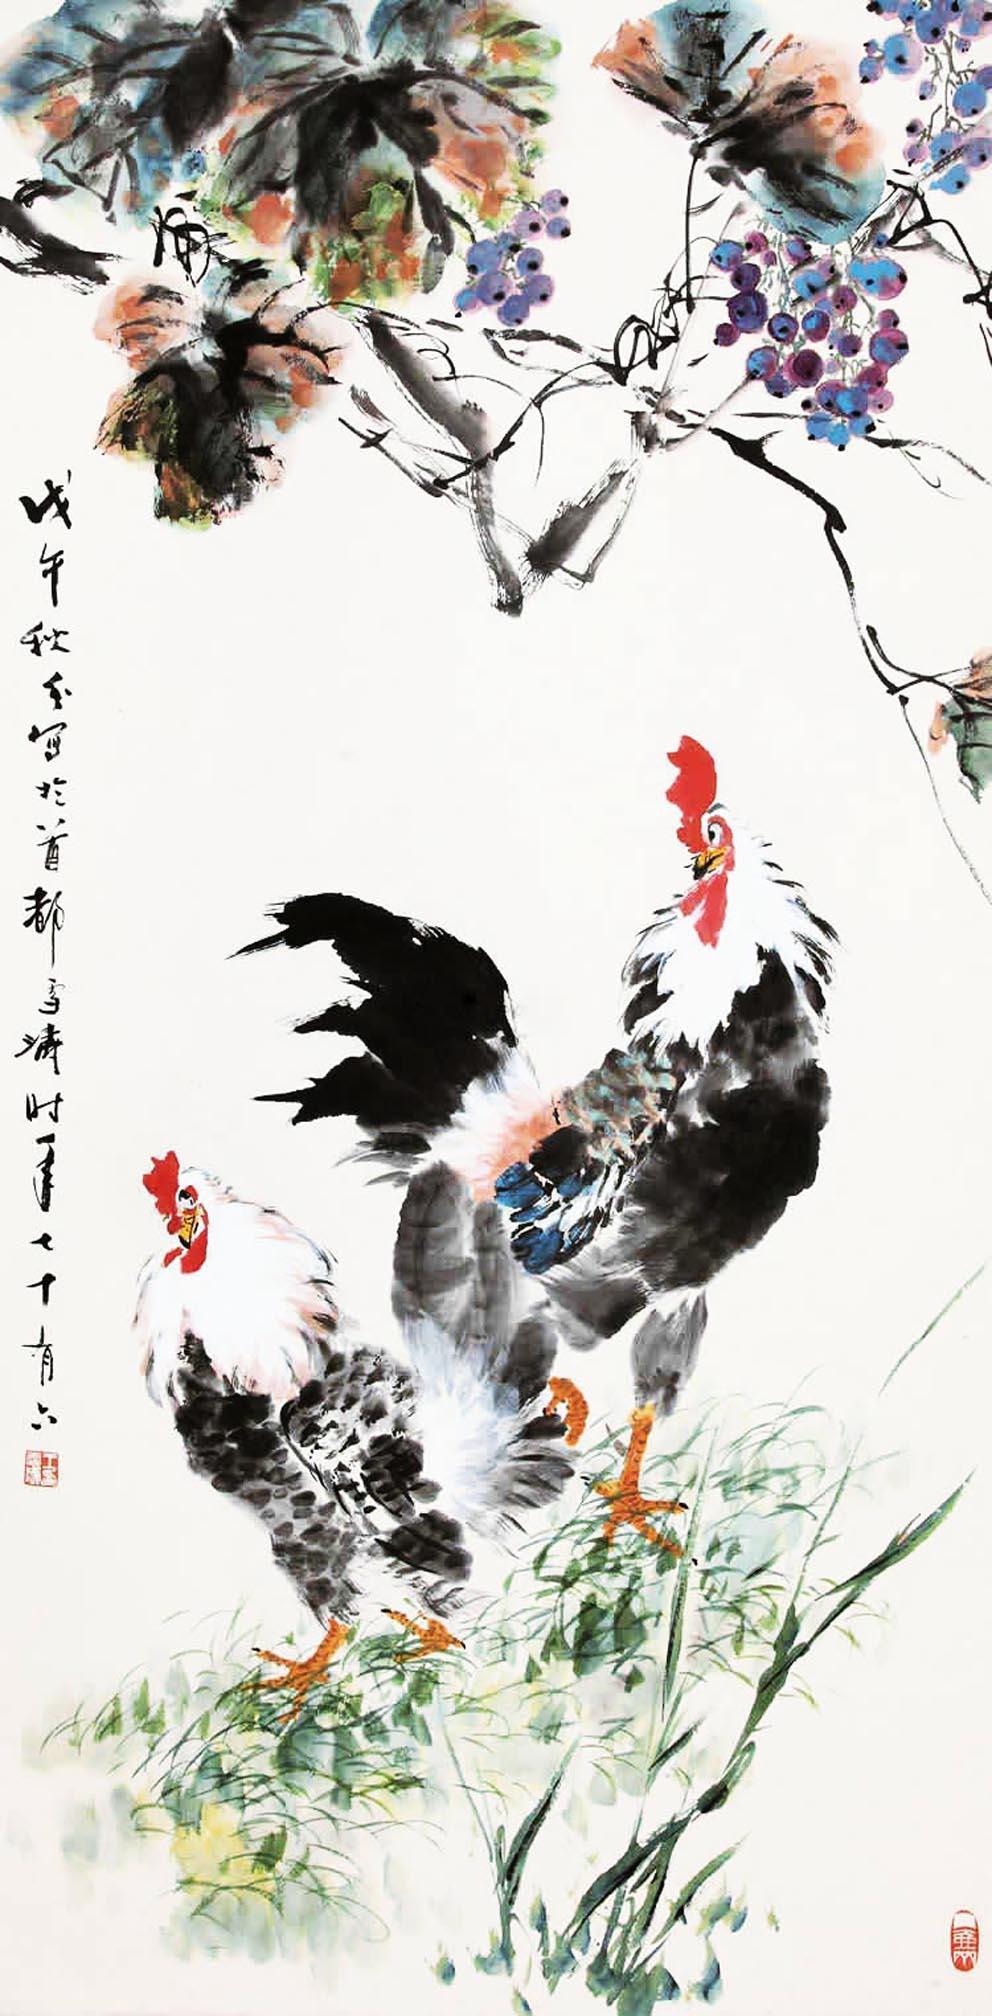 戊午秋分写於首都雪涛时年七十有六